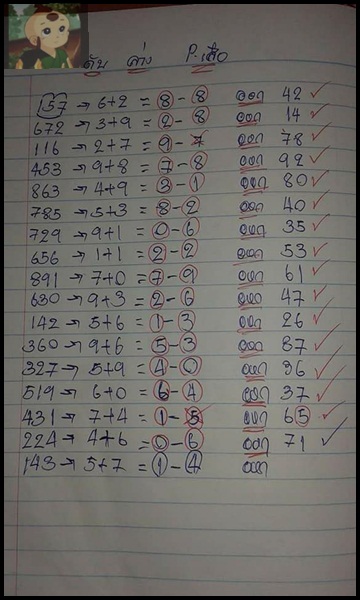 ดับ ล่าง P-เสือ
157 → 6+2 = 8-8 ออก 42 ✓
672 → 3+9 = 2-8 ออก 14 ✓
116 → 2+7 = 9-7 ออก 78 ✓
453 → 9+8 = 7-8 ออก 92 ✓
863 → 4+9 = 3-1 ออก 80 ✓
785 → 5+3 = 8-2 ออก 40 ✓
729 → 9+1 = 0-6 ออก 35 ✓
656 → 1+1 = 2-2 ออก 53 ✓
891 → 7+0 = 7-9 ออก 61 ✓
630 → 9+3 = 2-6 ออก 47 ✓
142 → 5+6 = 1-3 ออก 26 ✓
360 → 9+6 = 5-3 ออก 87 ✓
327 → 5+9 = 4-0 ออก 96 ✓
519 → 6+0 = 6-4 ออก 37 ✓
431 → 7+4 = 1-5 ออก 65 ✓
224 → 4+6 = 0-6 ออก 71 ✓
143 → 5+7 = 1-4 ออก